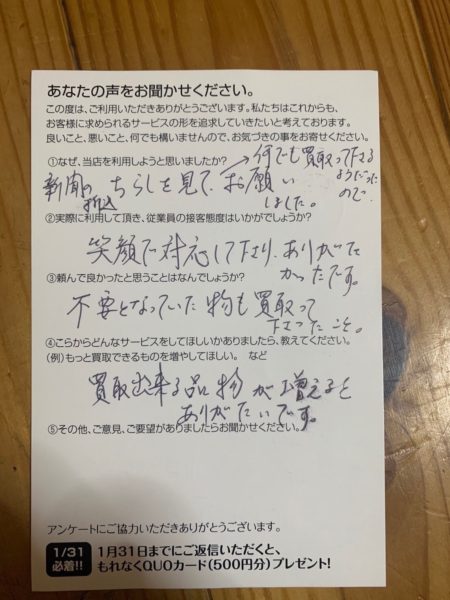 あなたの声をお聞かせください。
この度は、ご利用いただきありがとうございます。私たちはこれからも、
お客様に求められるサービスの形を追求していきたいと考えております。
良いこと、悪いこと、何でも構いませんので、お気づきの事をお寄せください。
①なぜ、当店を利用しようと思いましたか?
→何でも買取って下さる
ようだった
ので
新聞の折込ちらしを見て、お願い
しました。
②実際に利用して頂き、従業員の接客態度はいかがでしょうか?
笑顔で対応して下さり、ありがた
かったです。
③頼んで良かったと思うことはなんでしょうか?
不要となっていた物も買取って
下さったこと。
④こらからどんなサービスをしてほしいかありましたら、教えてください。
(例)もっと買取できるものを増やしてほしい。 など
買取出来る品物が増えると
ありがたいです。
⑤その他、ご意見、ご要望がありましたらお聞かせください。
アンケートにご協力いただきありがとうございます。
1/31
必着!!
1月31日までにご返信いただくと、
もれなくQUOカード(500円分)プレゼント!